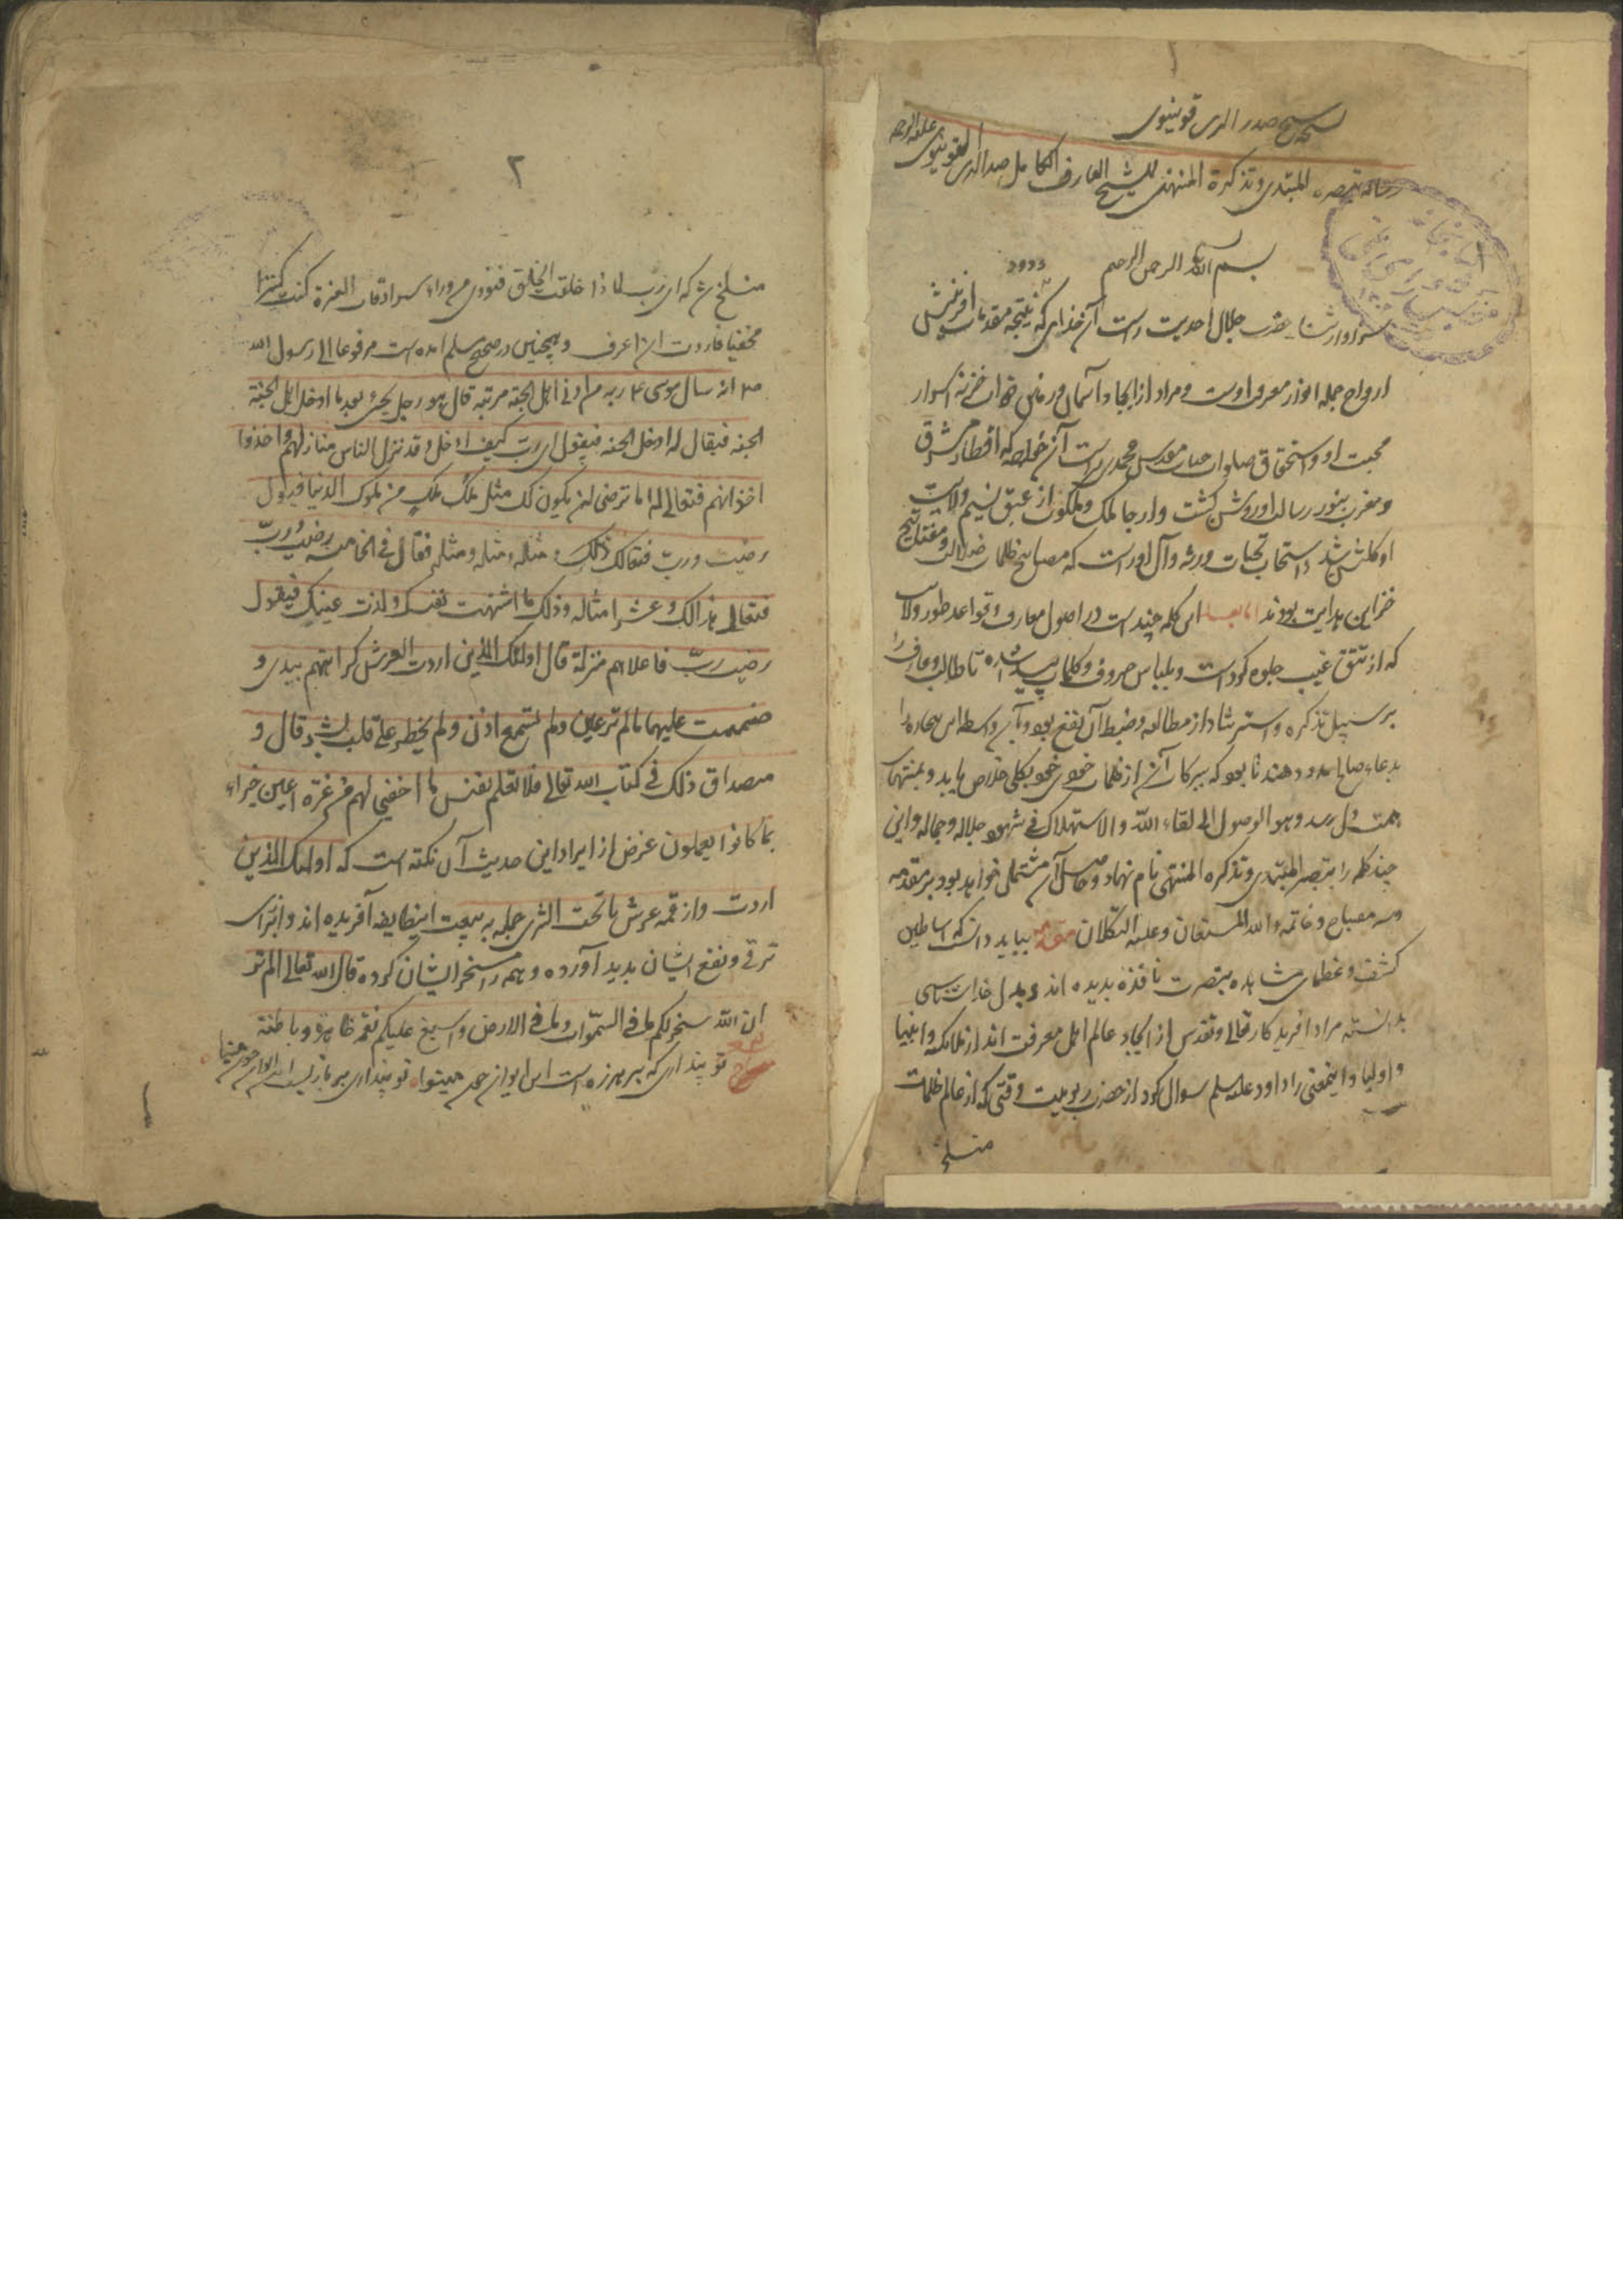 نسخه شیخ صدر الدین قونیوی
رساله تبصره المبتدی و تذکرة المنتهی للشیخ العارف الکامل صدر الدین القونیوی علیه الرحمه
بسم الله الرحمن الرحیم
سزاوار ثنا حضرت جلال احدیت راست آن خدای که نتیجه مقدمات آفرینش
ارواح جمله انوار معرفت اوست و مراد از ایجاد آسمان و زمین خزنه اسرار
محبت او و استحقاق صلوات حضرت مقدس محمدی راست آن خواجه که اقطار مشرق
و مغرب بنور رسالت او روشن گشت و ارجا ملک و ملکوت از عبق نسیم ولایت
او گلشن شد و استحباب تحیات ورثه و آل او راست که مصابیح ظلمات ضلالت و مفاتیح
خزاین هدایت بودند اما بعد این کلمه چند است در اصول معارف و قواعد طور ولایت
که از تتق غیب جلوه کرده است و بلباس حروف و کلمات پیدا شده تا طالب و عارف را
بر سبیل تذکره و استرشاد از مطالعه و ضبط آن نفع بود و باین واسطه این بیچاره را
بدعاء صالح مدد دهند تا بود که ببرکات آن از ظلمات خودی خود بکلی خلاص یابد و بمنتهای
همت دل رسد و هو الوصول الی لقاء الله و الاستهلاک فی شهود جلاله و جماله و این
چند کلمه را تبصرة المبتدی و تذکره المنتهی نام نهاد و حاصل آن مشتمل خواهد بود بر مقدمه
و سه مصباح و خاتمه والله المستعان و علیه التکلان مقدمه بباید دانست که اساطین
کشف و عظمای مشاهده ببصرت نافذه بدیده اند و بدل خدای شناس
بدانسته مراد آفریدگار تعالی و تقدس از ایجاد عالم اهل معرفت اند از ملائکه و انبیا
و اولیا و اینمعنی را داود علیه السلم سوال کرد از حضرت ربوبیت وقتی که از عالم ظلمات
منسلخ
۲
منسلخ شد که ای رب لماذا خلقت الخلق فنودی من وراء سرادقات العزة کنت کنزا
مخفیا فاردت ان اعرف و همچنین در صحیح مسلم آمده است مرفوعا الی رسول الله
انه سال موسی ربه من ادنی اهل الجنة مرتبه قال هو رجل یجیء بعد ما ادخل اهل الجنة
الجنة فیقال له ادخل الجنه فیقول ای رب کیف ادخل و قد نزل الناس منازلهم و اخذوا
اخذاتهم فیقال له اما ترضی ان یکون لک مثل ملک ملک من ملوک الدنیا فیقول
رضیت رب فیقال لک ذلک و مثله و مثله و مثله فقال فی الخامسه رضیت رب
فیقال هذا لک و عشرا مثاله و ذلک ما اشتهت نفسک و لذت عینک فیقول
رضیت رب فاعلاهم منزلة قال اولئک الذین اردت الغرس کرامتهم بیدی و
ختمت علیها ما لم تر عین و لم تسمع اذن و لم یخطر علی قلب بشر قال و
مصداق ذلک فی کتاب الله تعالی فلا تعلم نفس ما اخفی لهم من قرة اعین جزاء
بما کانوا یعملون غرض از ایراد این حدیث آن نکته است که اولئک الذین
اردت و از قمه عرش تا تحت الثری جمله به تبعیت اینطایفه آفریده اند و از برای
ترقی و نفع ایشان پدید آورده و همه را مسخر ایشان کرده قال الله تعالی الم تر
ان الله سخر لکم ما فی السموات و ما فی الارض و اسبغ علیکم نعمه ظاهرة و باطنة
شعر تو پنداری که بر هرزه است این ایوان چون مینو تو پنداری بر بازیست